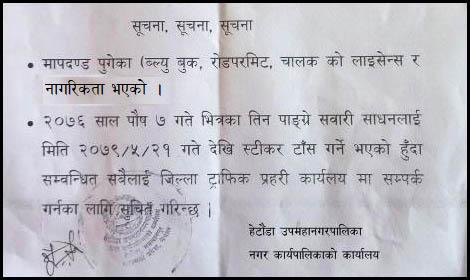 सूचना, सूचना, सूचना
• मापदण्ड पुगेका (ब्ल्यु बुक, रोडपरमिट, चालक को लाइसेन्स र
नागरिकता भएको ।
• २०७६ साल पौष ७ गते भित्रका तिन पाङ्ग्रे सवारी साधनलाई
मिति २०७९/५/२१ गते देखि स्टीकर टाँस गर्ने भएको हुँदा
सम्वन्धित सवैलाई जिल्ला ट्राफिक प्रहरी कार्यलय मा सम्पर्क
गर्नका लागि सुचित गरिन्छ ।
हेटौंडा उपमहानगरपालिका
नगर कार्यपालिकाको कार्यालय